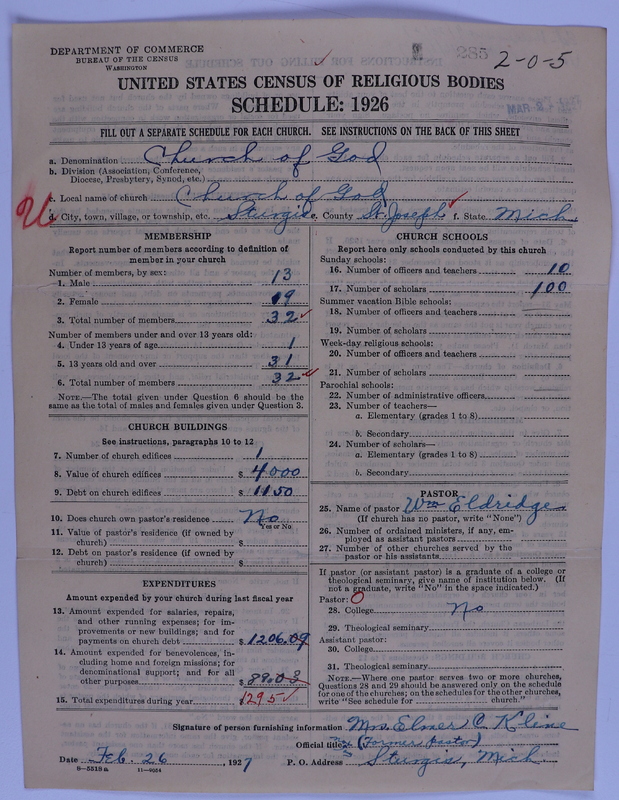 DEPARTMENT OF COMMERCE
BUREAU OF THE CENSUS
WASHINGTON
285 2-0-5
UNITED STATES CENSUS OF RELIGIOUS BODIES
SCHEDULE: 1926
FILL OUT A SEPARATE SCHEDULE FOR EACH CHURCH. SEE INSTRUCTIONS ON THE BACK OF THIS SHEET
a. Denomination Church of God
b. Division (Association, Conference, Diocese, Presbytery, Synod, etc.)
c. Local name of church Church of God
d. City, town, village, or township, etc. Sturgis e. County St. Joseph f. State Mich
MEMBERSHIP
Report number of members according to definition of member in your church
Number of members, by sex:
1. Male 13
2. Female 19
3. Total number of members 32
Number of members under and over 13 years old:
4. Under 13 years of age 1
5. 13 years old and over 31
6. Total number of members 32
NOTE.—The total given under Question 6 should be the
same as the total of males and females given under Question 3.
CHURCH BUILDINGS
See instructions, paragraphs 10 to 12
7. Number of church edifices 1
8. Value of church edifices $ 4000
9. Debt on church edifices $ 1150
10. Does church own pastor's residence No
Yes or No
11. Value of pastor's residence (if owned by
church) $
12. Debt on pastor's residence (if owned by
church) $
EXPENDITURES
Amount expended by your church during last fiscal year
13. Amount expended for salaries, repairs,
and other running expenses; for im-
provements or new buildings; and for
payments on church debt $ 1206.09
14. Amount expended for benevolences, in-
cluding home and foreign missions; for
denominational support; and for all
other purposes $ 89.03
15. Total expenditures during year 1295
CHURCH SCHOOLS
Report here only schools conducted by this church
Sunday schools:
16. Number of officers and teachers 10
17. Number of scholars 100
Summer vacation Bible schools:
18. Number of officers and teachers
19. Number of scholars
Week-day religious schools:
20. Number of officers and teachers
21. Number of scholars
Parochial schools:
22. Number of administrative officers
23. Number of teachers—
a. Elementary (grades 1 to 8)
b. Secondary
24. Number of scholars—
a. Elementary (grades 1 to 8)
b. Secondary
PASTOR
25. Name of pastor Wm Eldridge
(If church has no pastor, write "None")
26. Number of ordained ministers, if any, em-
ployed as assistant pastors
27. Number of other churches served by the
pastor or his assistants
If pastor (or assistant pastor) is a graduate of a college or
theological seminary, give name of institution below. (If
not a graduate, write "No" in the space indicated.)
Pastor: O
28. College No
29. Theological seminary
Assistant pastor:
30. College
31. Theological seminary
NOTE.—Where one pastor serves two or more churches,
Questions 28 and 29 should be answered only on the schedule
for one of the churches; on the schedules for the other churches,
write "See schedule for church."
Signature of person furnishing information Mrs. Elmer C. Kline
Official title (Former Pastor)
Date Feb. 26, 1927 P. O. Address Sturgis, Mich
8—5518a 11—9064